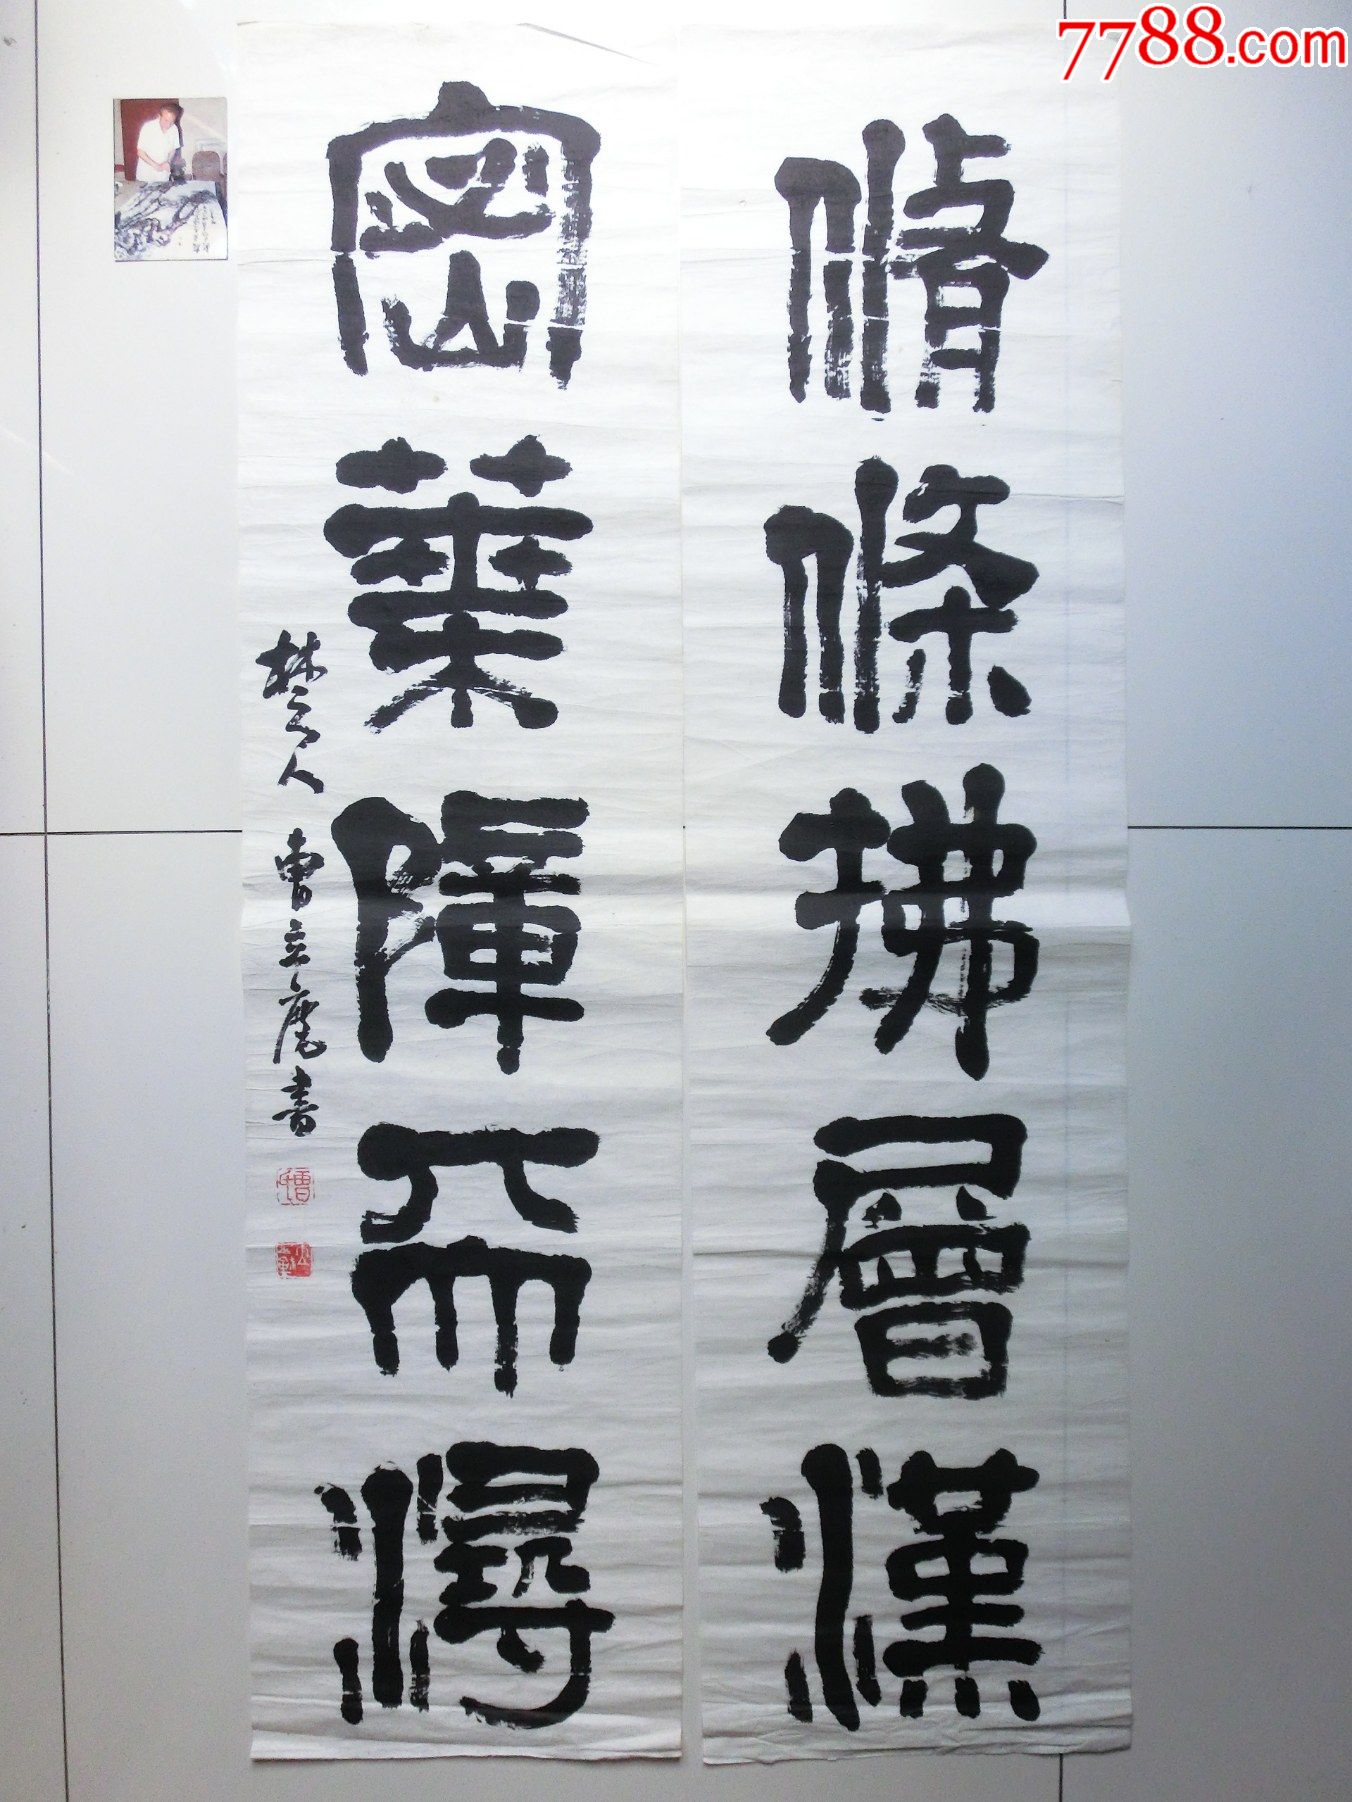 7788.com
脩條拂層漢
密葉障天潯
楚人曹立庵書